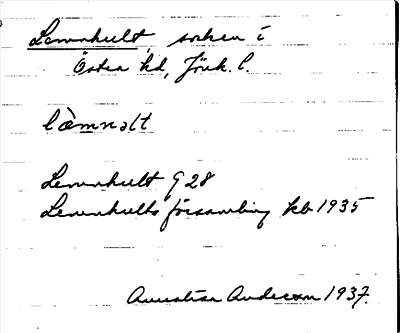 Lemnhult socken i
Östra hd, Jönk. l.
lèmnəlt
Lemnhult G 28
Lemnhults församling kb 1935
Anderson 1937.